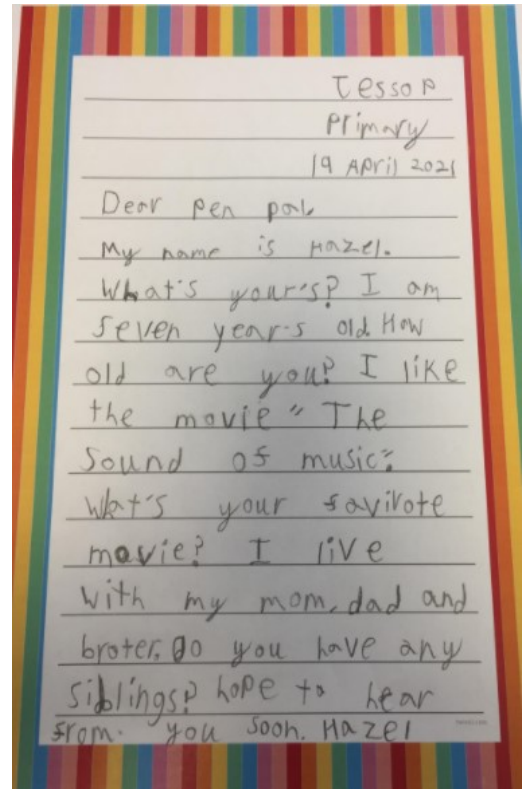 Jessop
Primary
19 April 2021
Dear pen pal
My name is Hazel.
What's your's? I am
seven year's old. How
old are you? I like
the movie "The
Sound of music".
What's your favirote
movie? I live
with my mom, dad and
broter, Do you have any
siblings? hope to hear
from. you soon. Hazel